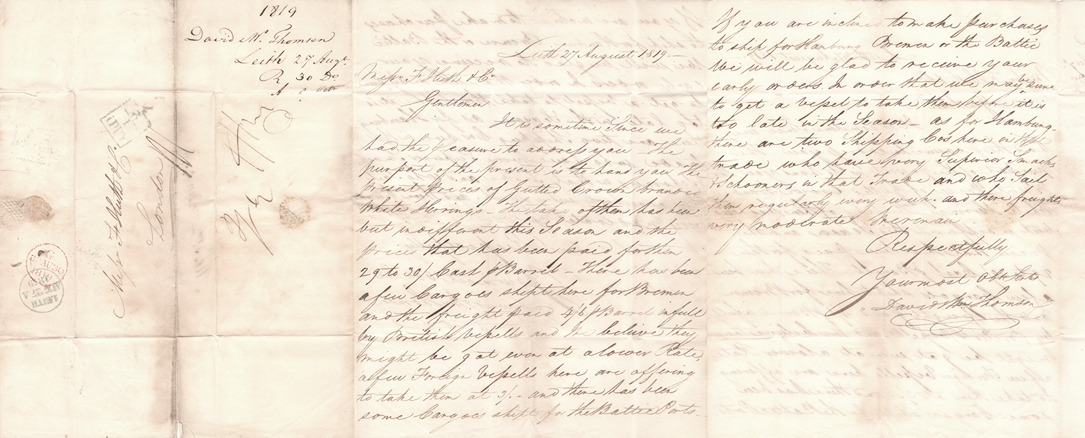 1819
David Wm. Thomson
Leith 27 Augt.
R 30 Do
Messrs. F. Huth & Co.
London
Leith 27 August 1819 —
Messrs. F. Huth & Co.
Gentlemen
It is sometime Since we
had the Pleasure to address you The
purport of the present is to hand you the
Present Prices of Gutted Crown branded
White Herrings — The take of them has been
but indifferent this Season and the
Prices that has been paid for them
29 to 30/ Cash ⅌ Barrel — There has been
a few Cargoes shipt here for Bremen
and the freight paid 4/6 ⅌ Barrel in full
by British Vessells and we believe they
might be got even at a lower Rate,
a few Foreign Vessells here are offering
to take them at 3/. — and there has been
some Cargoes shipt for the Baltic Ports.
If you are inclined to make purchases
to ship for Hamburg Bremen or the Baltic
We will be glad to receive your
early orders In order that we may be sure
to get a vessel to take them before it is
too late in the Season — as for Hamburg
there are two Shipping Cos here in that
trade who have very Superior Smacks
& Schooners in that Trade and who Sail
then regularly every week. and there freights
very moderate
Respectfully
Your most Obt Sts
David Wm Thomson
LEITH